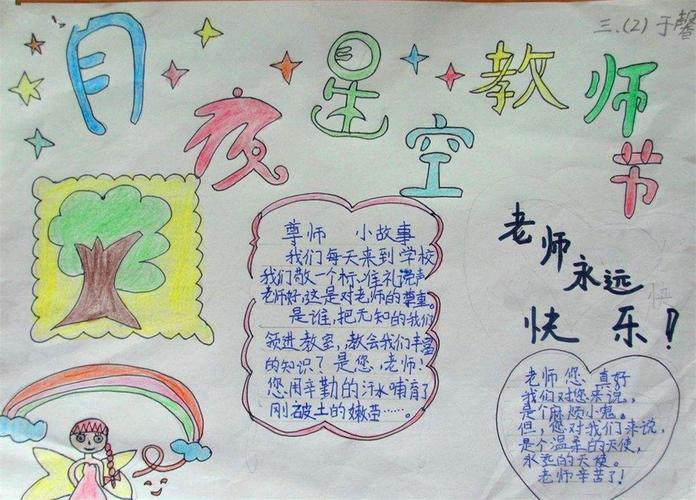 三.(2) 于馨
月夜星空教师节
尊师 小故事
我们每天来到学校
我们敬一个标准礼说声
老师好,这是对老师的尊重。
是谁,把无知的我们
领进教室,教会我们丰富
的知识?是您,老师!
您用辛勤的汗水哺育了
刚破土的嫩苗……。
老师永远
快乐!
老师您真好
我们对您来说,
是个麻烦小鬼。
但,您对我们来说,
是个温柔的天使,
永远的天使。
老师辛苦了!